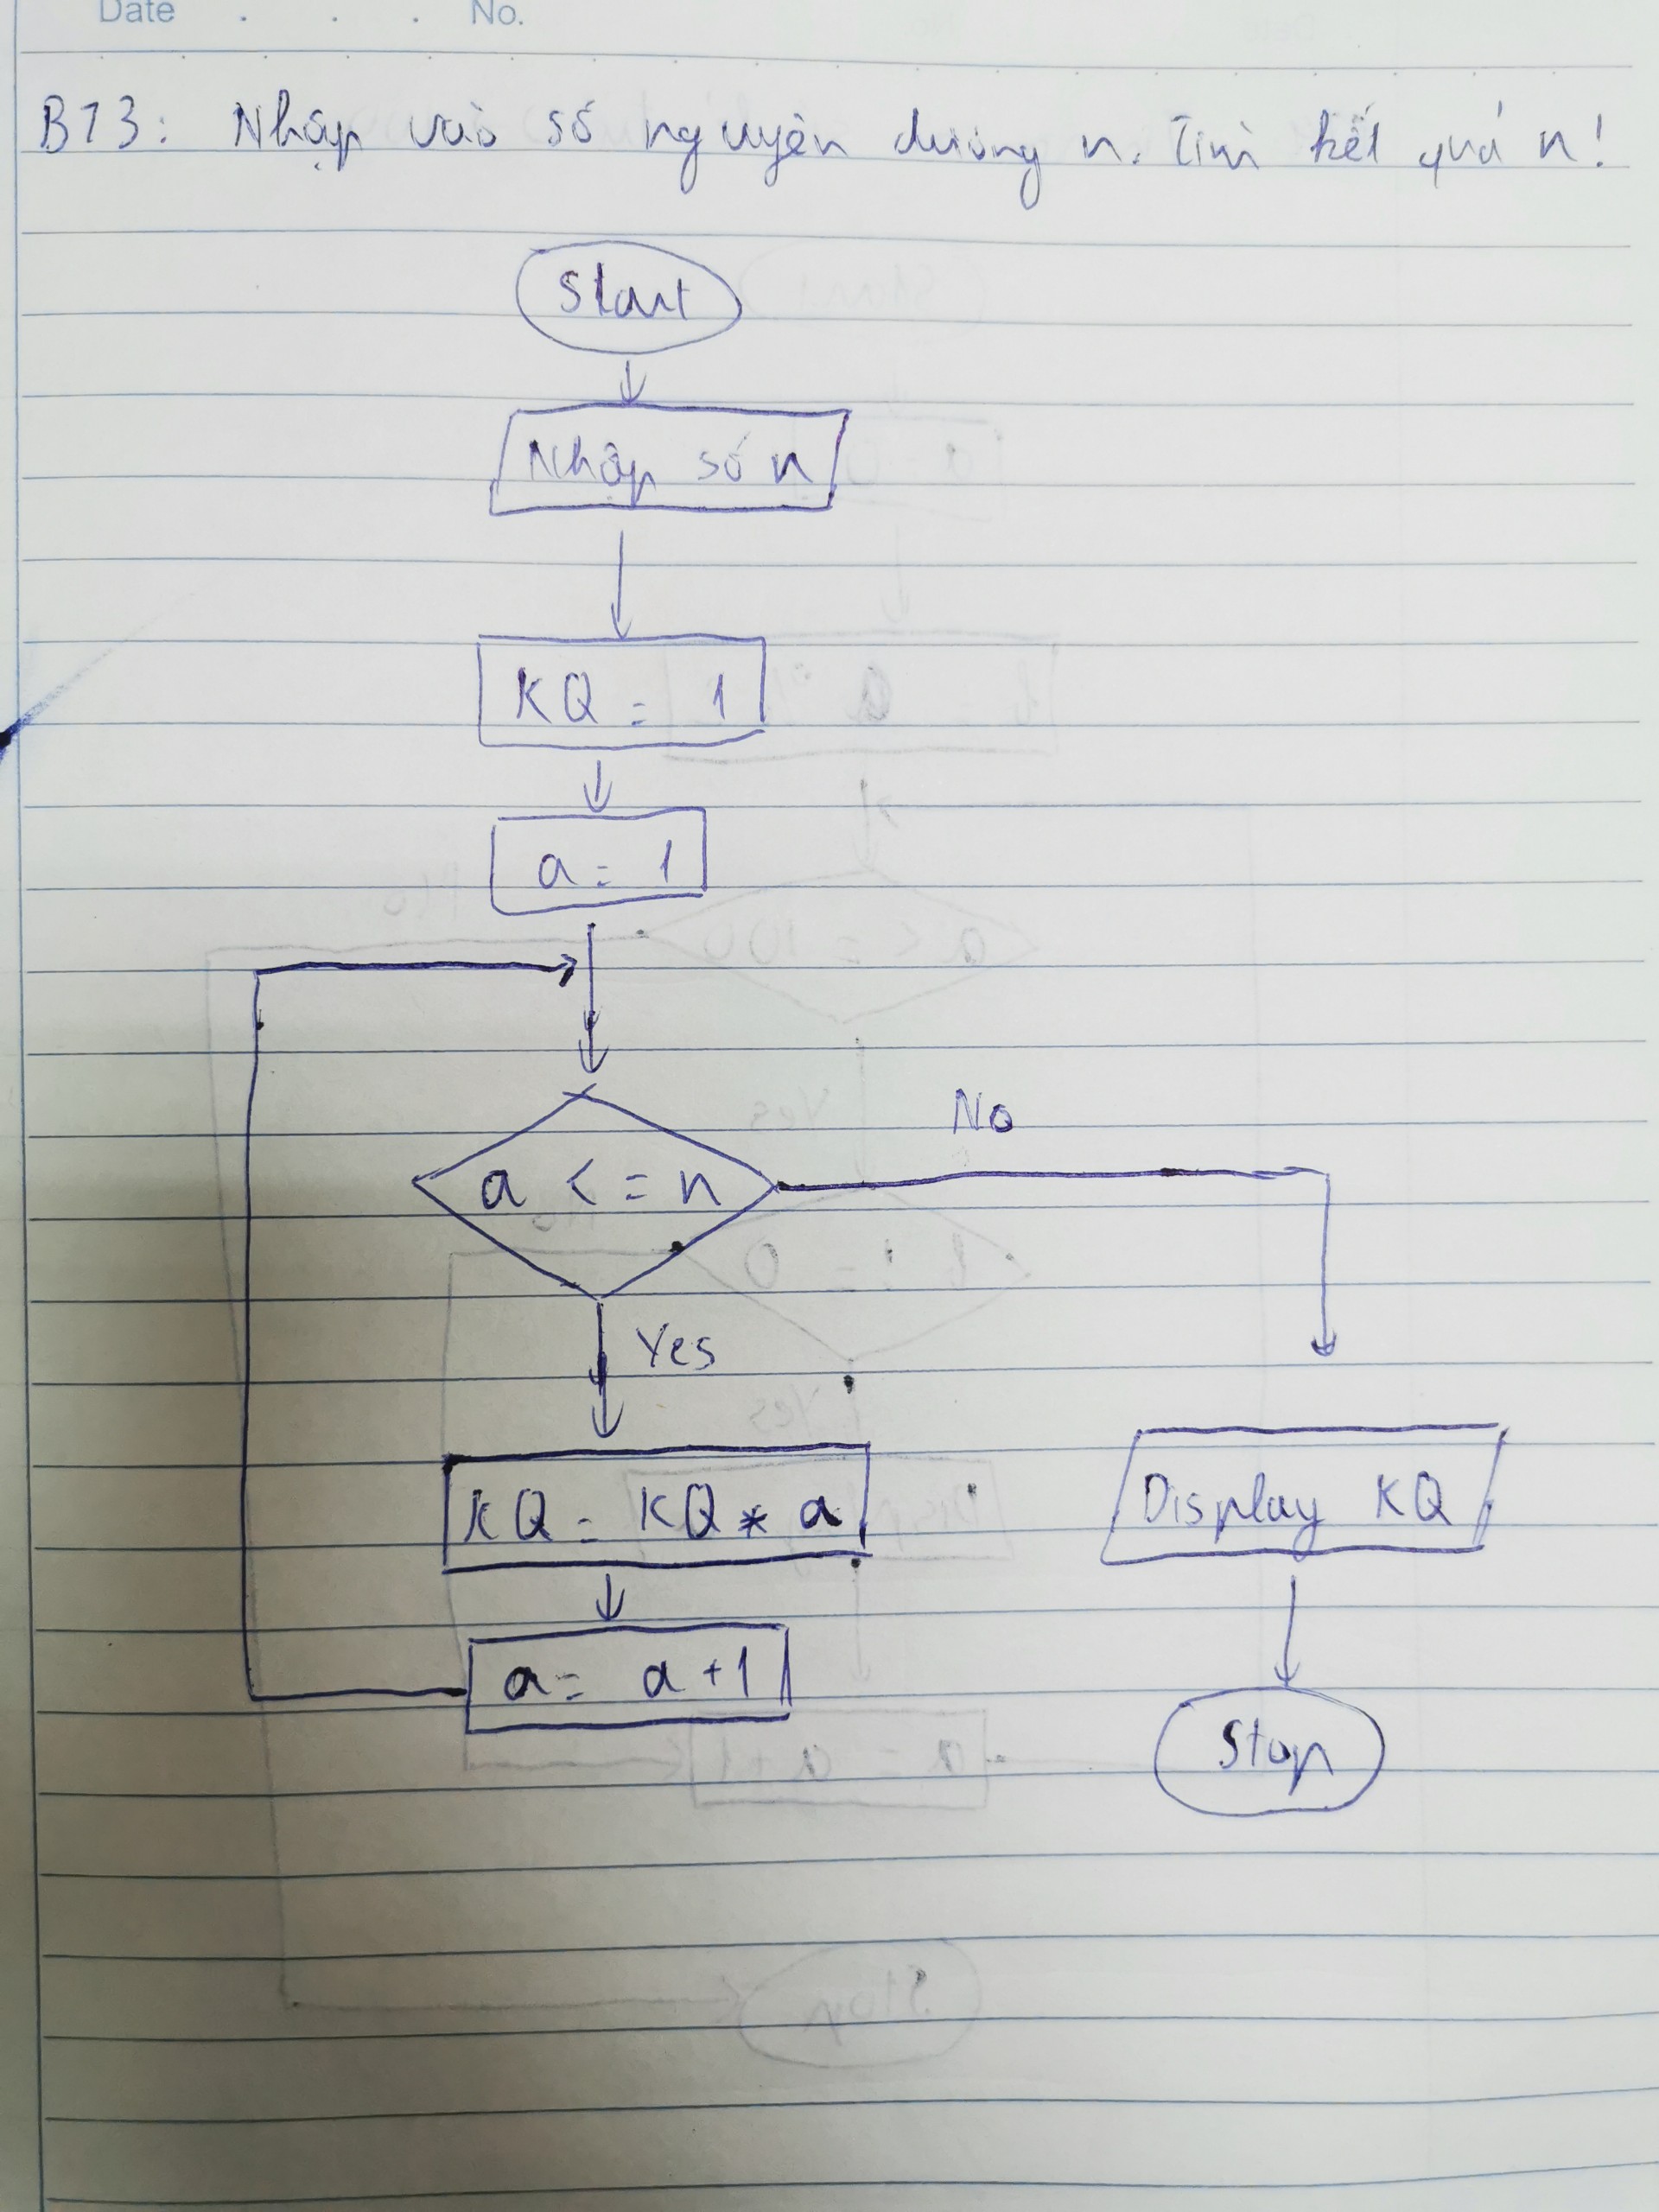 Date . . . No.
BT3: Nhập vào số nguyên dương n. Tìm kết quả n!
Start
Nhập số n
KQ = 1
a = 1
a <= n
No
Yes
KQ = KQ * a
Display KQ
a = a + 1
Stop